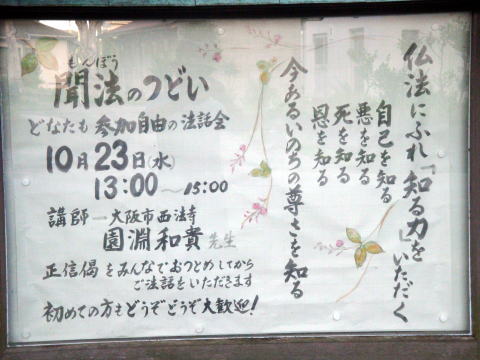 もんぽう
聞法のつどい
どなたも参加自由の法話会
10月23日(水)
13:00〜15:00
講師―大阪市西法寺
園淵和貴先生
正信偈をみんなでおつとめしてから
ご法話をいただきます
初めての方もどうぞどうぞ大歓迎!
仏法にふれ「知る力を」いただく
自己を知る
悪を知る
死を知る
恩を知る
今あるいのちの尊さを知る